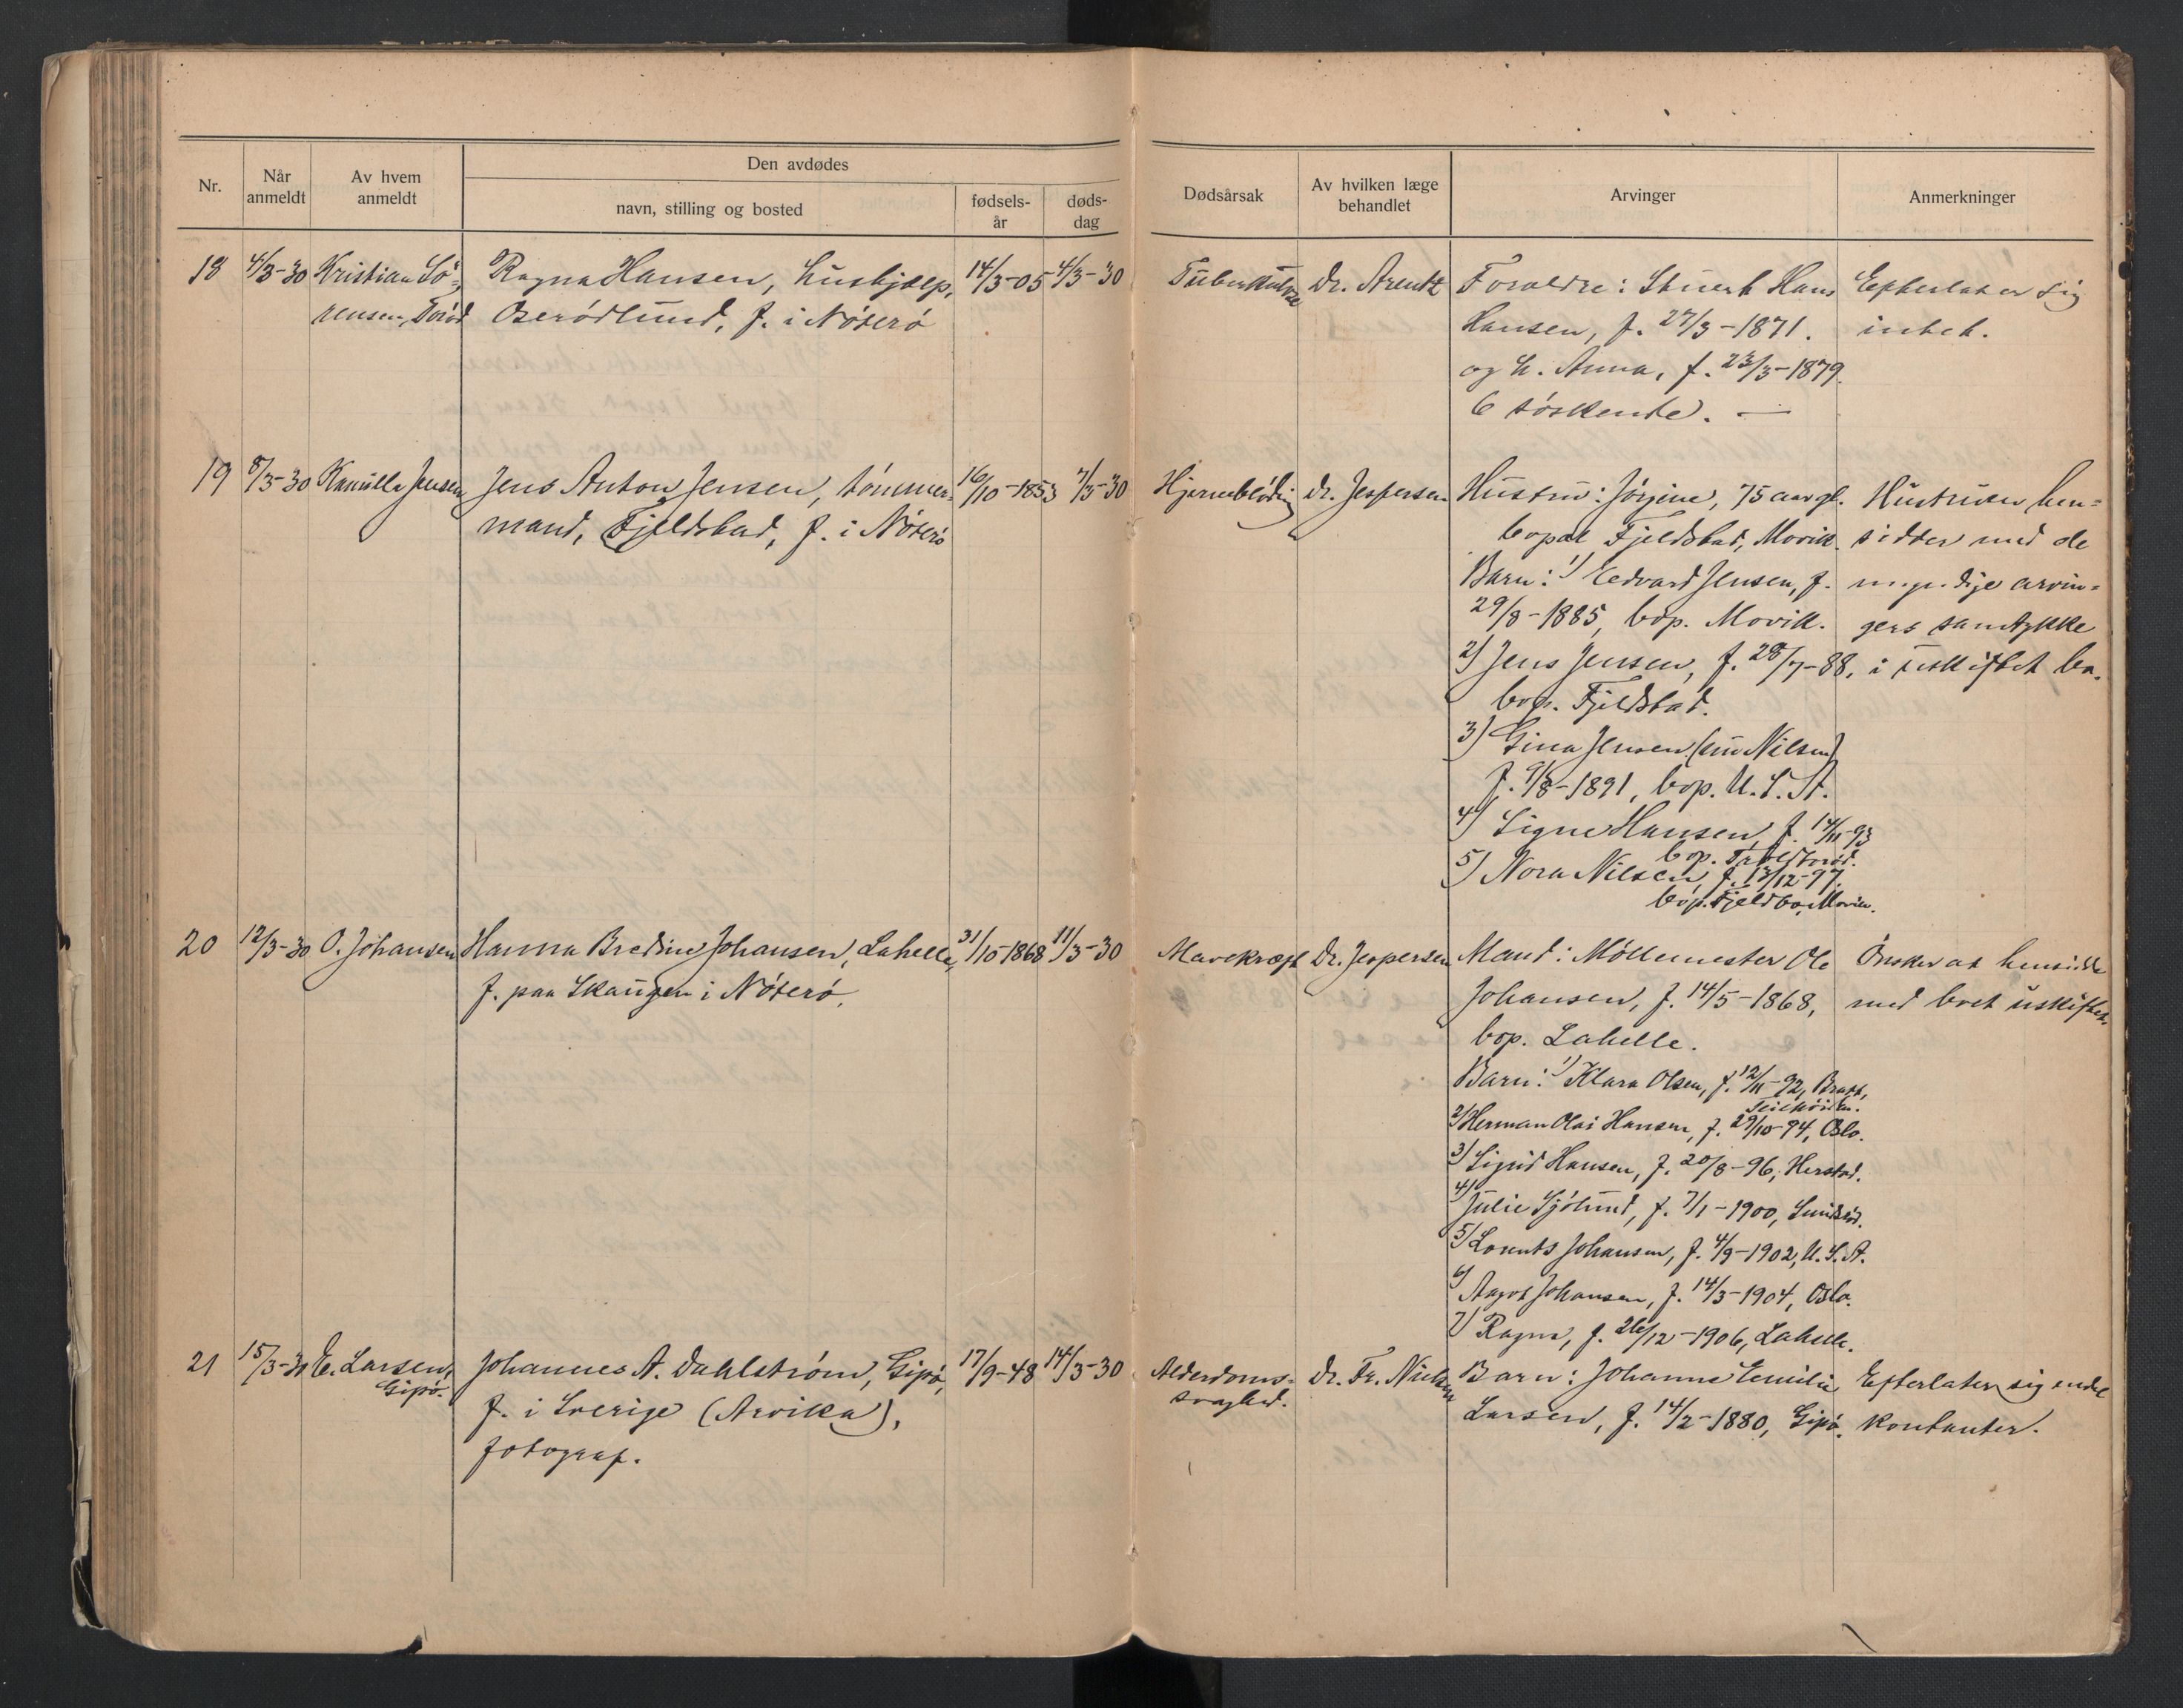 Nr.
Når
anmeldt
Av hvem
anmeldt
Den avdødes
navn, stilling og bosted
fødsels-
år
døds-
dag
Dødsårsak
Av hvilken læge
behandlet
Arvinger
Anmerkninger
18 4/3-30 Kristian Sö- Ragna Hansen, hushjælp, 14/3-05 4/3-30 Tuberkulose Dr. Arentz Foraldre: Stuert Hans Efterlater sig
rensen, Torød Oserödlund, f. i Nöterö Hansen, f. 27/3-1871. intet.
og h. Anna, f. 23/3-1879.
6 söskende. —
19 8/3-30 Kamilla Jensen Jens Anton Jensen, tömmer- 16/10-1853 7/3-30 Hjerneblödn. dr. Jespersen Hustru: Jörgine, 75 aar gl. Hustruen hen-
mand, Fjeldstad, f. i Nöterö bopæl Fjeldstad, Movik. sidder med de
Barn: 1) Edvard Jensen, f. myndige arvin-
29/8-1885, bop. Movik. gers samtykke
2) Jens Jensen, f. 28/7-88, i uskiftet bo.
bop. Fjeldstad.
3) Gina Jensen (nu Nilsen)
f. 9/8-1891, bop. U.S.A.
4) Signe Hansen f. 14/11-93
bop.
5) Nora Nilsen, f. 13/12-97.
bop. Fjeldbo, Movik.
20 12/3-30 O. Johansen Hanna Bredine Johansen, Lahelle, 31/10-1868 11/3-30 Mavekræft Dr. Jespersen Mand: Möllemester Ole Önsker at hensidde
f. paa Skaugen i Nöterö. Johansen, f. 14/5-1868, med boet uskiftet.
bop. Lahelle.
Barn: 1) Klara Olsen, f. 12/11-92, Bratt,
2) Herman Olai Hansen, f. 29/10-94, Oslo.
3) Sigrid Hansen, f. 20/8-96, Herstad.
4) Julie Sjölund, f. 7/1-1900,
5) Lorents Johansen, f. 4/9-1902, U.S.A.
6) Aagot Johansen, f. 14/3-1904, Oslo.
7) Ragna, f. 26/12-1906, Lahelle.
21 15/3-30 E. Larsen, Johannes A. Dahlström, Gipö, 17/9-48 14/3-30 Alderdoms- Dr. Fr. Nielsen Barn: Johanne Emilie Efterlater sig endel
Gipö. f. i Sverige (Arvika), svaghed. Larsen, f. 14/2-1880, Gipö. kontanter.
fotograf.